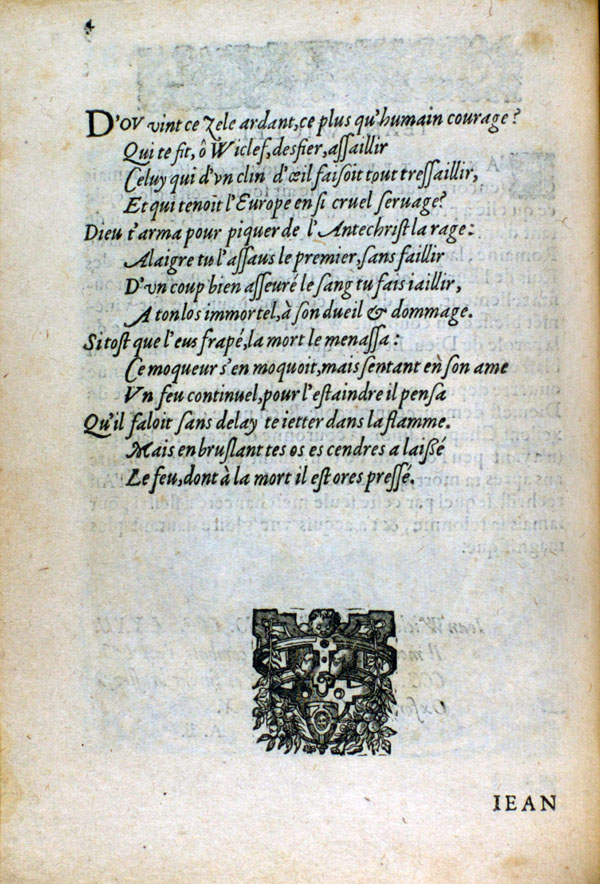 D'OV vint ce zele ardant, ce plus qu'humain courage?
Qui te fit, ô Wiclef, desfier, assaillir
Celuy qui d'vn clin d'œil faisoit tout tressaillir,
Et qui tenoit l'Europe en si cruel seruage?
Dieu t'arma pour piquer de l'Antechrist la rage:
Alaigre tu l'assaus le premier, sans faillir
D'vn coup bien asseuré le sang tu fais iaillir,
A ton los immortel, à son dueil & dommage.
Si tost que l'eus frapé, la mort le menassa:
Ce moqueur s'en moquoit, mais sentant en son ame
Vn feu continuel, pour l'estaindre il pensa
Qu'il faloit sans delay te ietter dans la flamme.
Mais en bruslant tes os es cendres a laissé
Le feu, dont à la mort il est ores pressé.
IEAN